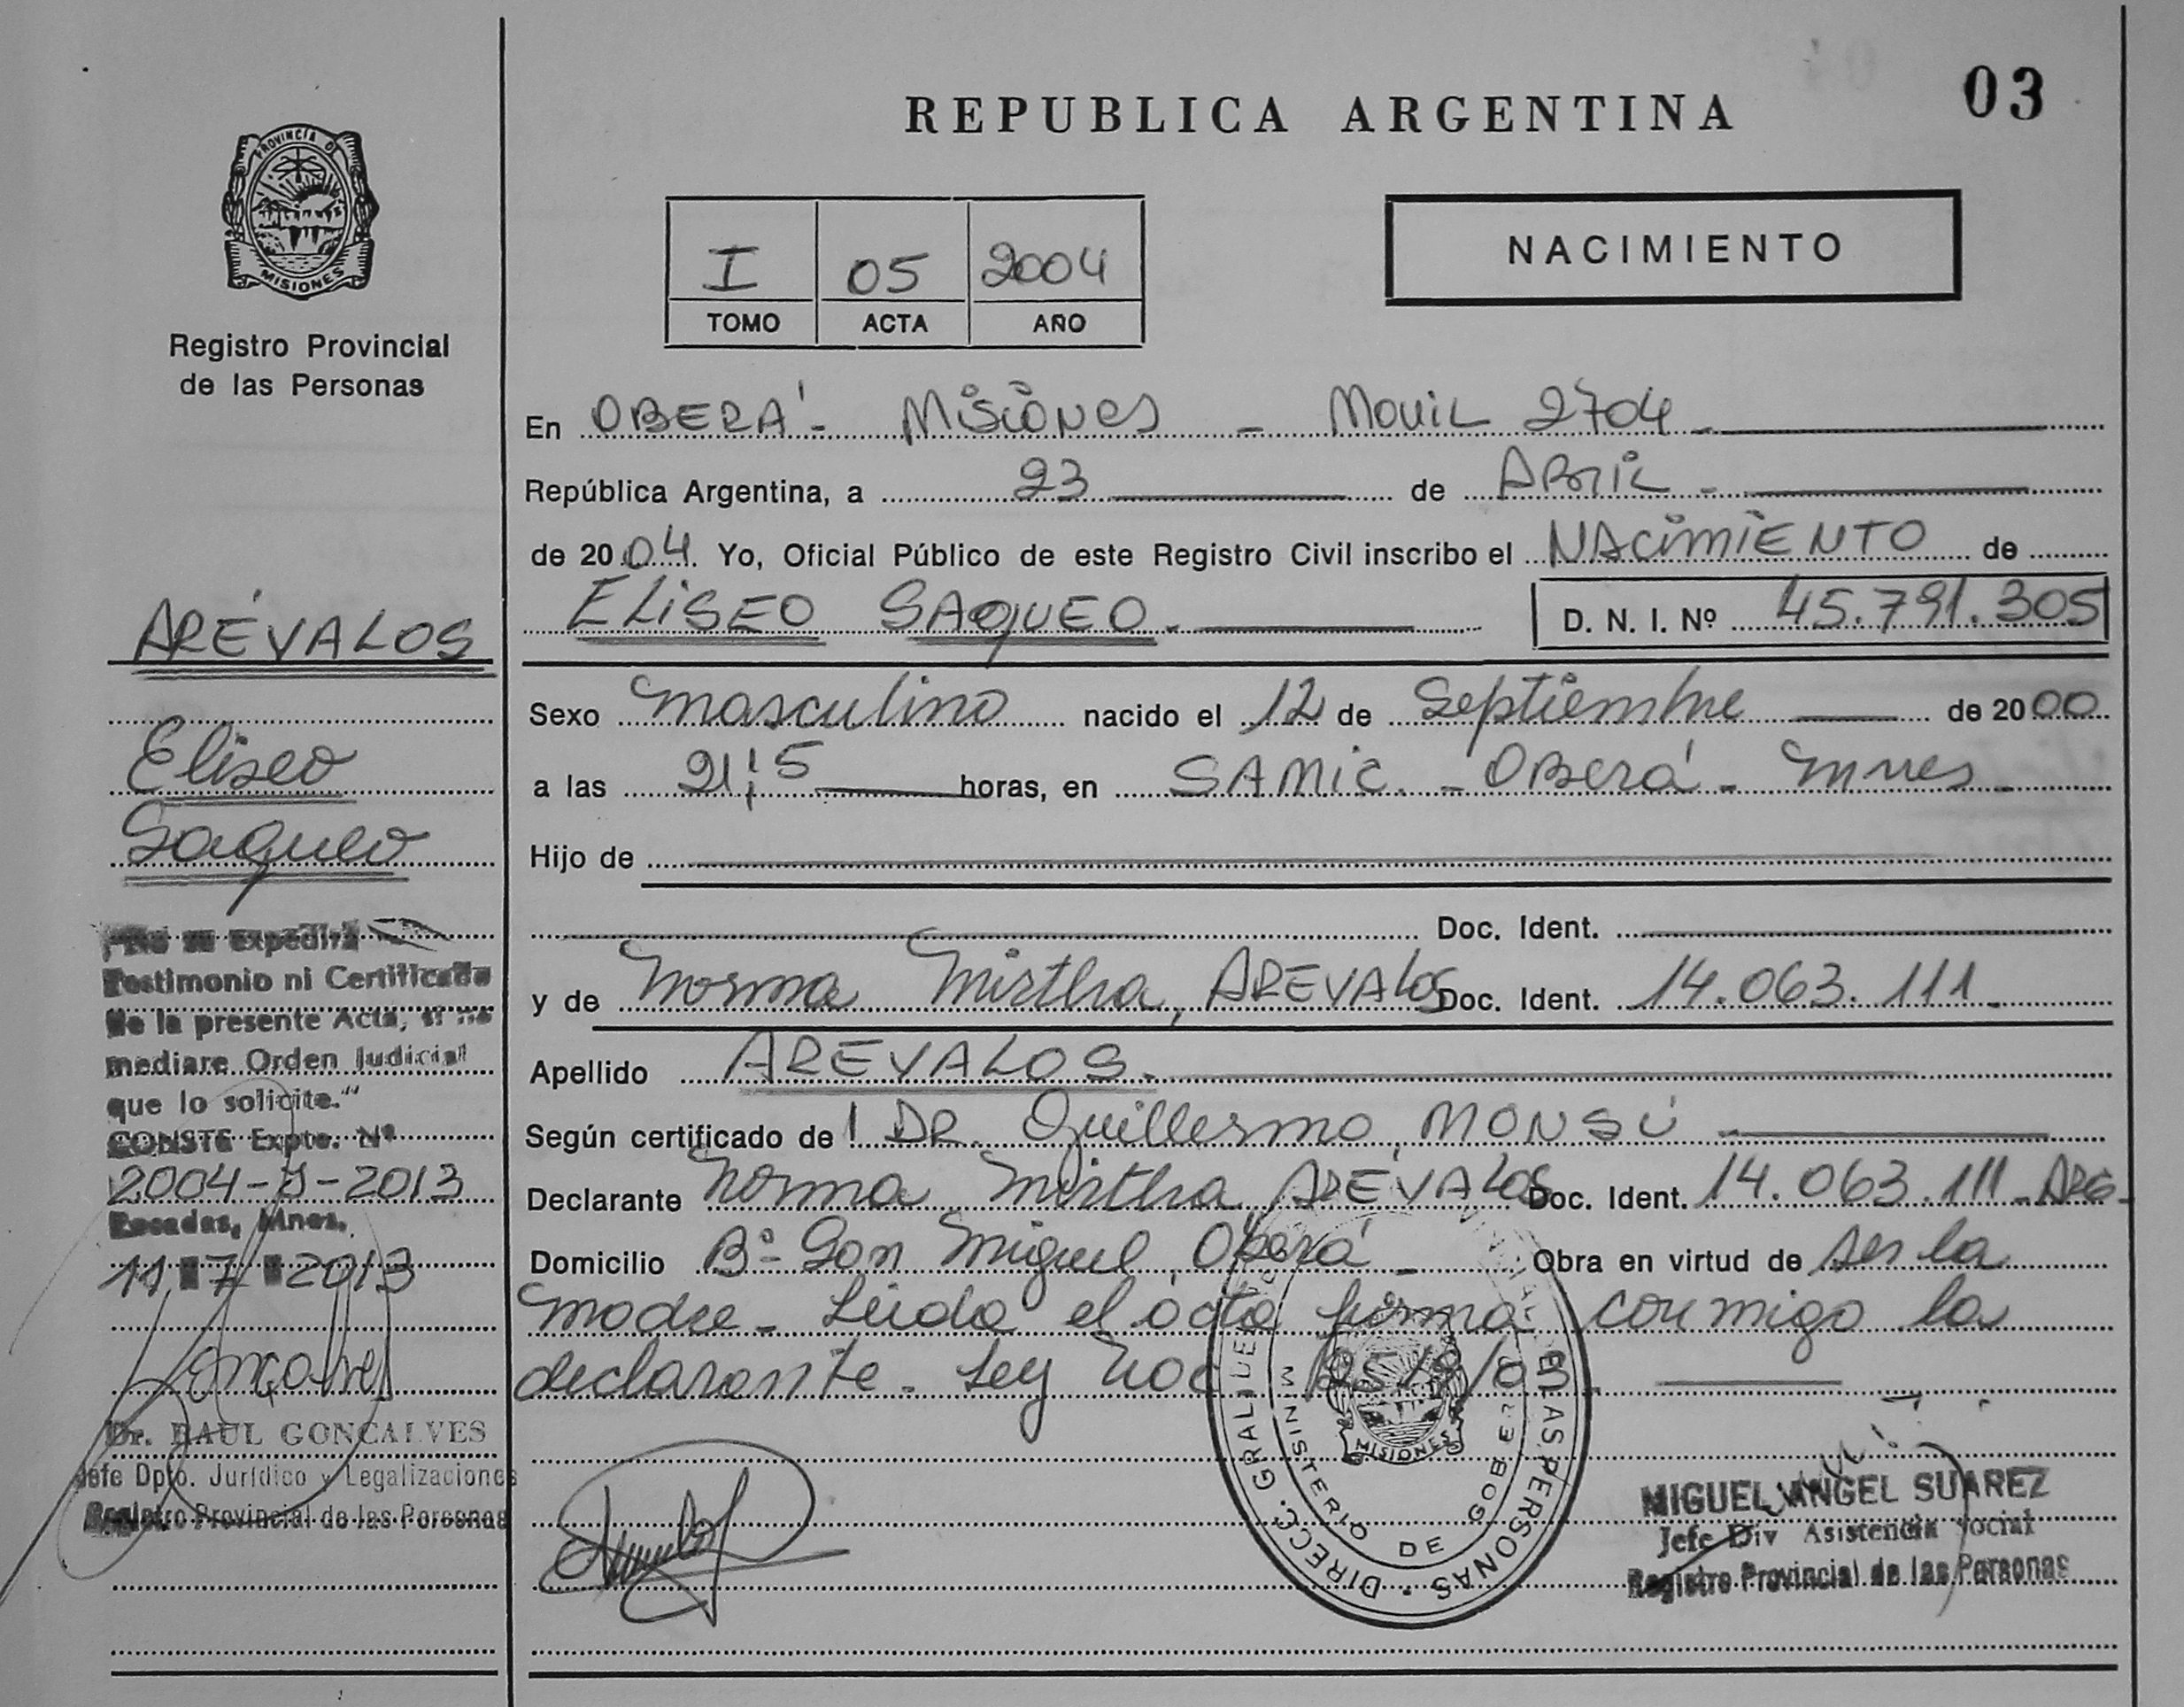 REPUBLICA ARGENTINA
03
PROVINCIA D
MISIONES
Registro Provincial
de las Personas
I 05 2004
TOMO ACTA AÑO
NACIMIENTO
En OBERÁ - MISIONES - MOVIL 2704 -
República Argentina, a 23 de ABRIL -
de 2004 Yo, Oficial Público de este Registro Civil inscribo el NACIMIENTO de
ELISEO SAQUEO - D. N. I. Nº 45.791.305
Sexo masculino nacido el 12 de Septiembre de 2000
a las horas, en SAMIC. - OBERÁ - Mnes -
Hijo de
Doc. Ident.
y de Norma Mirtha, AREVALOS Doc. Ident. 14.063.111 -
Apellido AREVALOS -
Según certificado de l DR. Guillermo MONSÚ -
Declarante Norma Mirtha ARÉVALOS Doc. Ident. 14.063.111 - ARG -
Domicilio Bº San Miguel, Oberá - Obra en virtud de ser la
madre - Leída el acta firma conmigo la
declarante - Ley
ARÉVALOS
Eliseo
Saqueo
"No se Expedirá
Testimonio ni Certificado
de la presente Acta, si no
mediare Orden Judicial
que lo solicite."
CONSTE Expte. Nº
2004-J-2013
Posadas, Mnes.
11 7 2013
Dr. RAUL GONCALVES
Jefe Dpto. Jurídico y Legalizaciones
Registro Provincial de las Personas
DIRECC. GRAL DE LAS PERSONAS
MINISTERIO DE GOBIERNO
MISIONES
MIGUEL ANGEL SUAREZ
Jefe Div Asistencia Social
Registro Provincial de las Personas